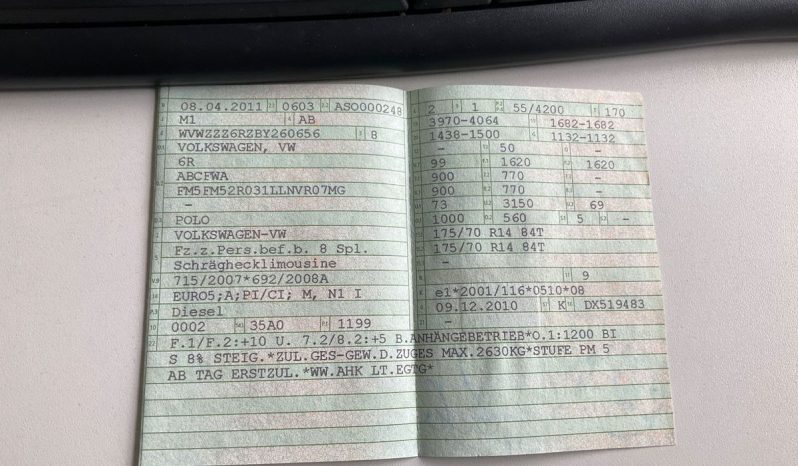 08.04.2011 0603 ASO000248
M1 AB
WVWZZZ6RZBY260656 8
VOLKSWAGEN, VW
6R
ABCFWA
FM5FM52R031LLNVR07MG
-
POLO
VOLKSWAGEN-VW
Fz.z.Pers.bef.b. 8 Spl.
Schräghecklimousine
715/2007*692/2008A
EURO5;A;PI/CI; M, N1 I
Diesel
0002 35A0 1199
2 1 55/4200 170
3970-4064 1682-1682
1438-1500 1132-1132
- 50 -
99 1620 1620
900 770 -
900 770 -
73 3150 69
1000 560 5 -
175/70 R14 84T
175/70 R14 84T
-
9
e1*2001/116*0510*08
09.12.2010 K DX519483
-
F.1/F.2:+10 U. 7.2/8.2:+5 B.ANHÄNGEBETRIEB*O.1:1200 BI
S 8% STEIG.*ZUL.GES-GEW.D.ZUGES MAX.2630KG*STUFE PM 5
AB TAG ERSTZUL.*WW.AHK LT.EGTG*